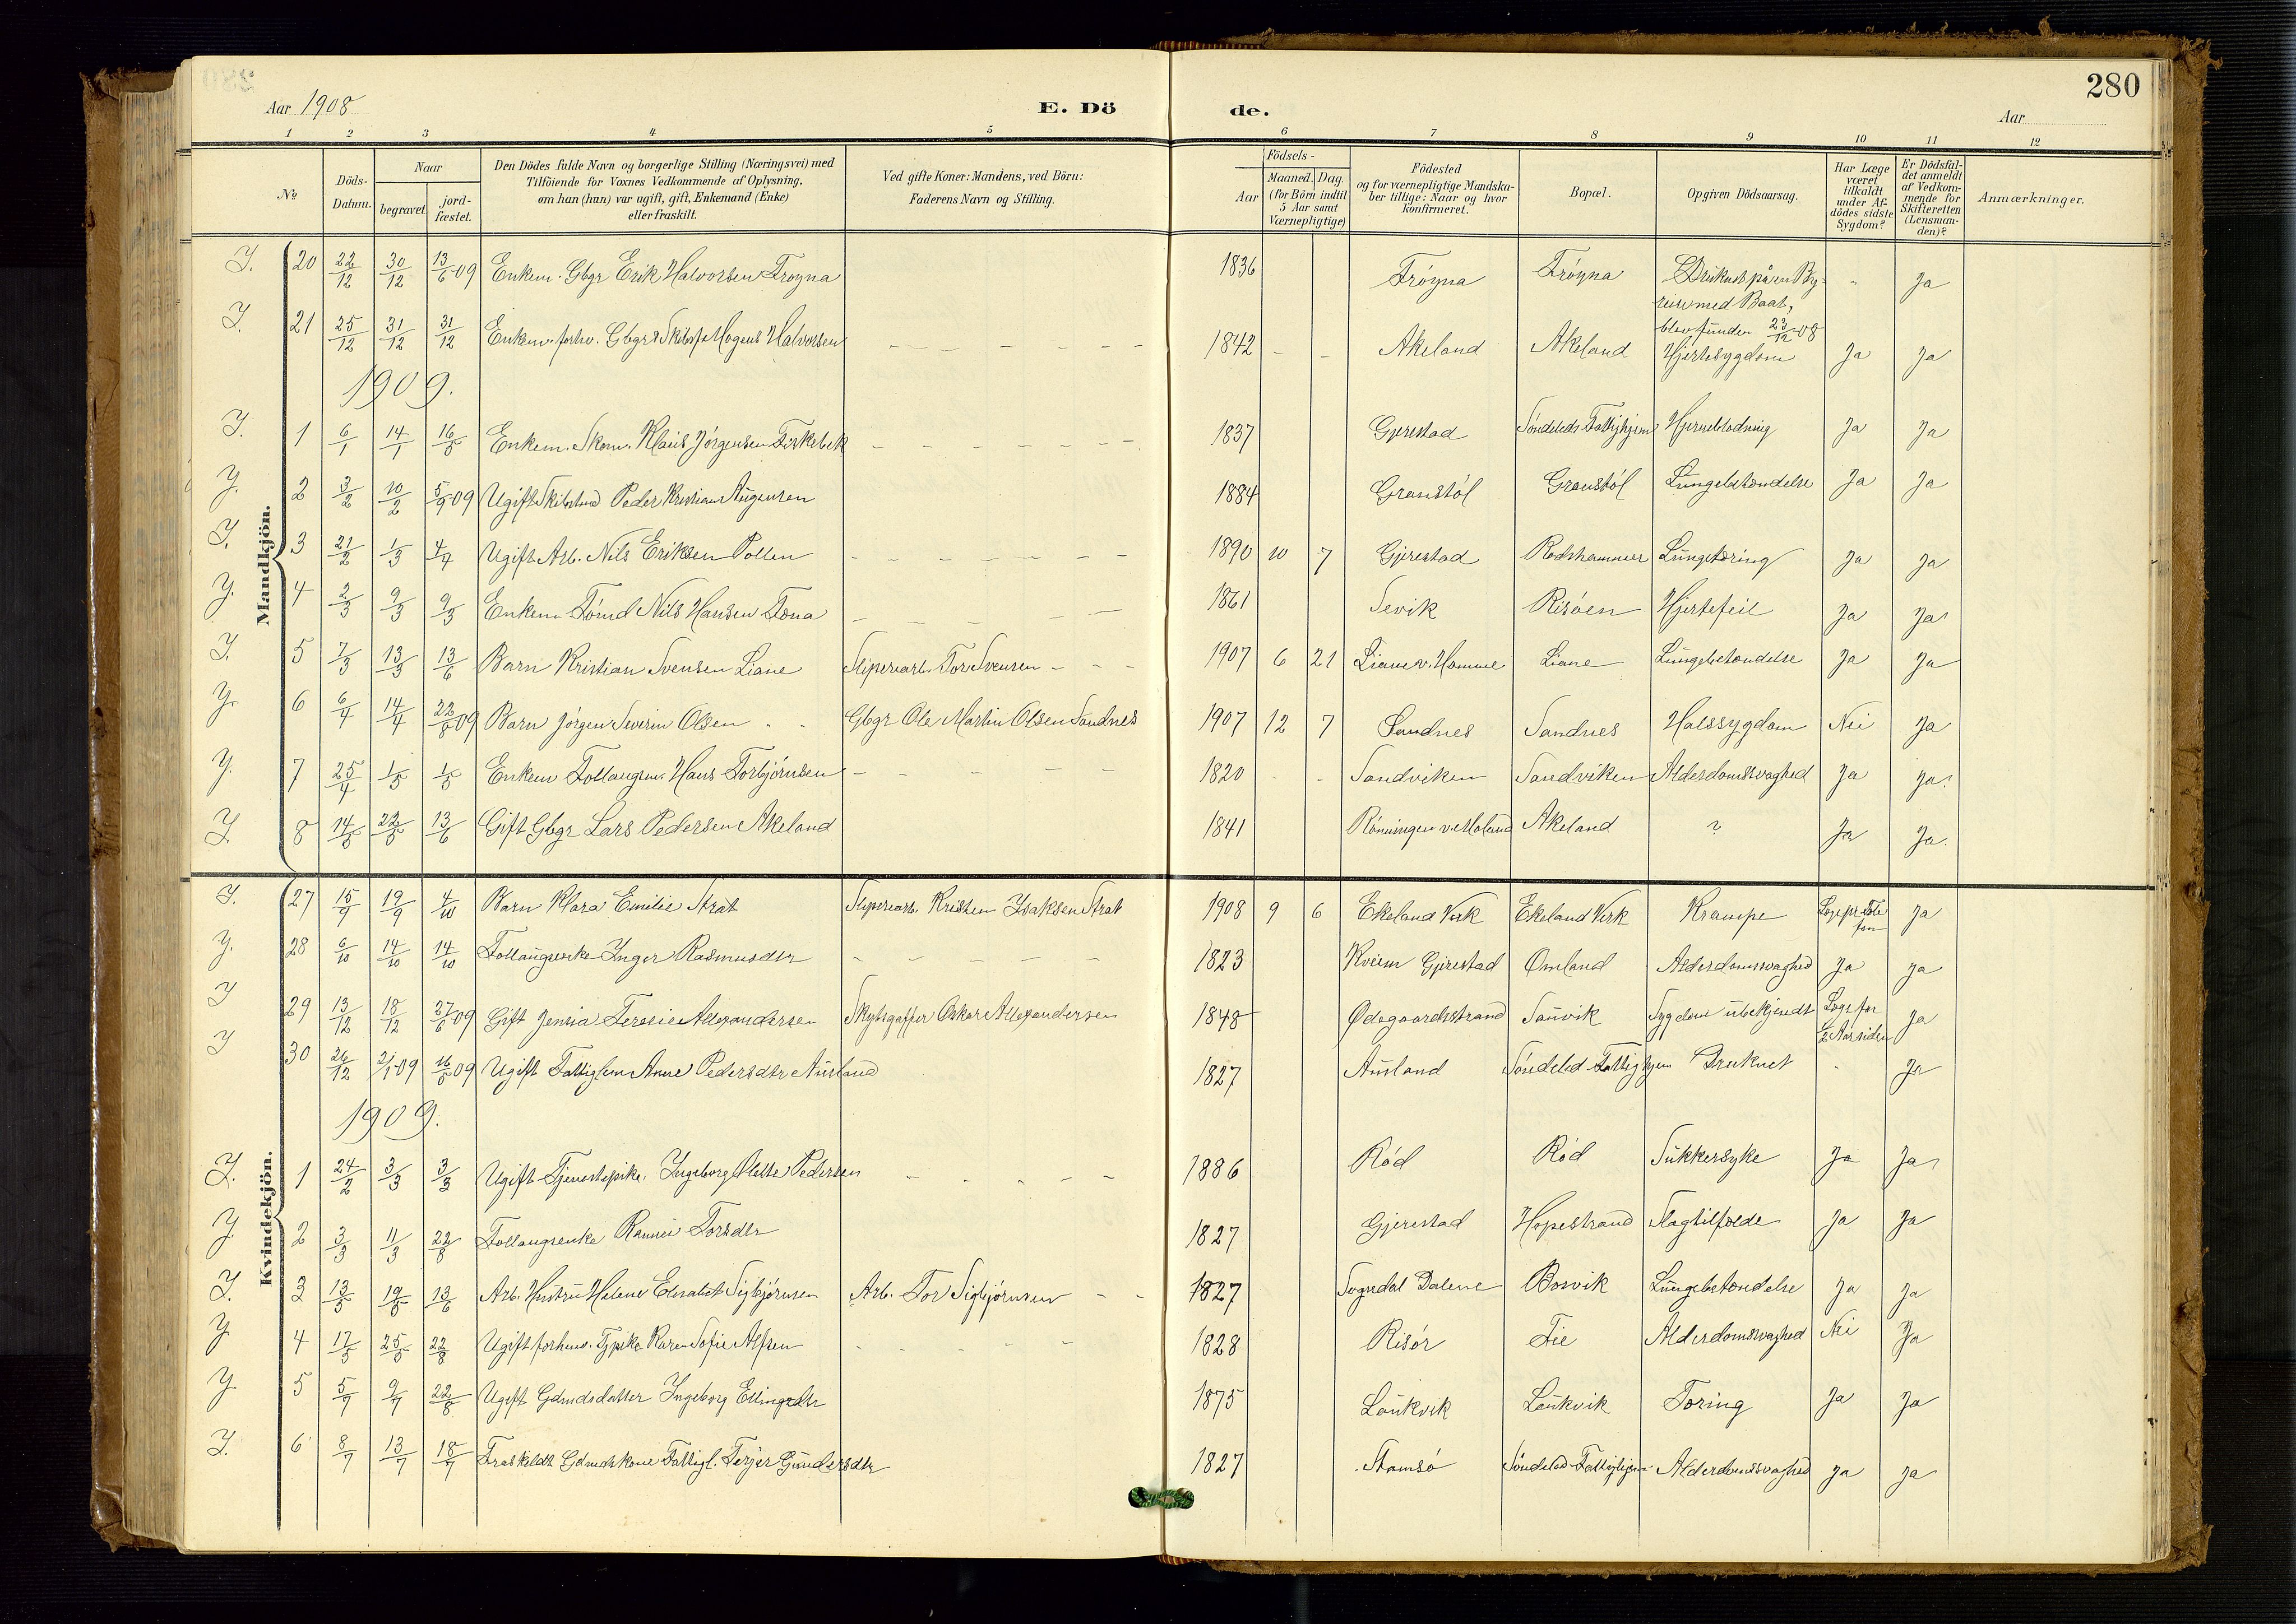 280
Aar 1908
E. Dö de.
Aar
1 2 3 4 5 6 7 8 9 10 11 12
No
Döds-Datum.
Naar
begravet.
jord-fæstet.
Den Dödes fulde Navn og borgerlige Stilling (Næringsvei) med
Tilföiende for Voxnes Vedkommende af Oplysning,
om han (hun) var ugift, gift, Enkemand (Enke)
eller fraskilt.
Ved gifte Koner: Mandens, ved Börn:
Faderens Navn og Stilling.
Födsels-
Aar
Maaned. Dag.
(for Börn indtil
5 Aar samt
Værnepligtige)
Födested
og for værnepligtige Mandska-
ber tillige: Naar og hvor
konfirmeret.
Bopæl.
Opgiven Dödsaarsag.
Har Læge
været
tilkaldt
under Af-
dödes sidste
Sygdom?
Er Dödsfal-
det anmeldt
af Vedkom-
mende for
Skifteretten
(Lensman-
den)?
Anmærkninger.
Mandkjön.
I. 20 22/12 30/12 13/6 09 Enkem. Gbgr Erik Halvorsen Trøyna 1836 Frøyna Frøyna Druknet på en By- " Ja
reise med Baat,
blev funden 23/12 08
I. 21 25/12 31/12 31/12 Enkem. forhv. Gbgr & Skibsf. Mogens Halvorsen 1842 Akeland Akeland Hjertesygdom Ja Ja
1909.
I. 1 6/1 14/1 16/5 Enkem. Skom. Klaus Jørgensen Firkebek 1837 Gjerestad Søndeleds Fattighjem Hjerneblødning Ja Ja
Y. 2 3/2 10/2 5/9 09 Ugift Peder Kristian Augensen 1884 Granstøl Granstøl Lungebetændelse Ja Ja
I. 3 21/2 1/3 4/4 Ugift Arb. Nils Eriksen Pollen 1890 10 7 Gjerestad Rødshammer Lungetæring Ja Ja
Y. 4 2/3 9/3 9/3 Enkem Tømd Nils Hansen Fona 1861 Sevik Risøen Hjertefeil Ja Ja
I. 5 7/3 13/3 13/6 Barn Kristian Svensen Liane Sliperiarb. Tor Svensen 1907 6 21 Liane v. Hamme Liane Lungebetændelse Ja Ja
Y. 6 6/4 14/4 22/8 09 Barn Jørgen Severin Olsen Gbgr Ole Martin Olsen Sandnes 1907 12 7 Sandnes Sandnes Halssygdom Nei Ja
Y. 7 25/4 1/5 1/5 Enkem Follaugsm. Hans Torbjørnsen 1820 Sandviken Sandviken Alderdomssvaghed Ja Ja.
I. 8 14/5 22/5 13/6 Gift Gbgr Lars Pedersen Akeland 1841 Rønningen v. Moland Akeland ? Ja Ja.
Kvindekjön.
I. 27 15/9 19/9 4/10 Barn Klara Emilie Strat Sliperiarb. Kristen Isaksen Strat 1908 9 6 Ekeland Verk Ekeland Verk Krampe Læge pr Tele- Ja
fon
Y. 28 6/10 14/10 14/10 Follaugsenke Inger Rasmusdtr 1823 Kveim Gjerestad Omland Alderdomssvaghed Ja Ja
I 29 13/12 18/12 27/6 09 Gift Jensia Teresie Alexandersen Skytsgaffer Oskar Alexandersen 1848 Ødegaardsstrand Sanvik Sygdom ubekjendt Læge for Ja
2 Aar siden
I 30 26/12 2/1 09 16/5 09 Ugift Fattiglem Anne Pedersdtr Ausland 1827 Ausland Søndeled Fattighjem Druknet Ja
1909.
I. 1 24/2 3/3 3/3 Ugift Tjenestepike. Ingeborg Olette Pedersen 1886 Rød Rød Sukkersyke Ja Ja
Y. 2 3/3 11/3 22/8 Follaugsenke Rannei Torsdtr 1827 Gjerestad Hopestrand Slagtilfælde Ja Ja
I. 3 13/5 19/5 13/6 Arb. Hustru Helene Elisabet Sigbjørnsen Arb. Tor Sigbjørnsen 1827 Sogndal Dalene Bosvik Lungebetændelse Ja Ja
Y. 4 17/5 25/5 22/8 Ugift forhenv. Tjpike Karen Sofie Alfsen 1828 Risør Fie Alderdomssvaghed Nei Ja
Y. 5 5/7 9/7 22/8 Ugift Gdmdsdatter Ingeborg Ellingsdtr 1875 Laukvik Laukvik Tæring Ja Ja
I. 6 8/7 13/7 18/7 Fraskildt Gdmdskone Fattigl. Terjer Gundersdtr 1827 Stamsø Søndeled Fattighjem Alderdomssvaghed Ja Ja